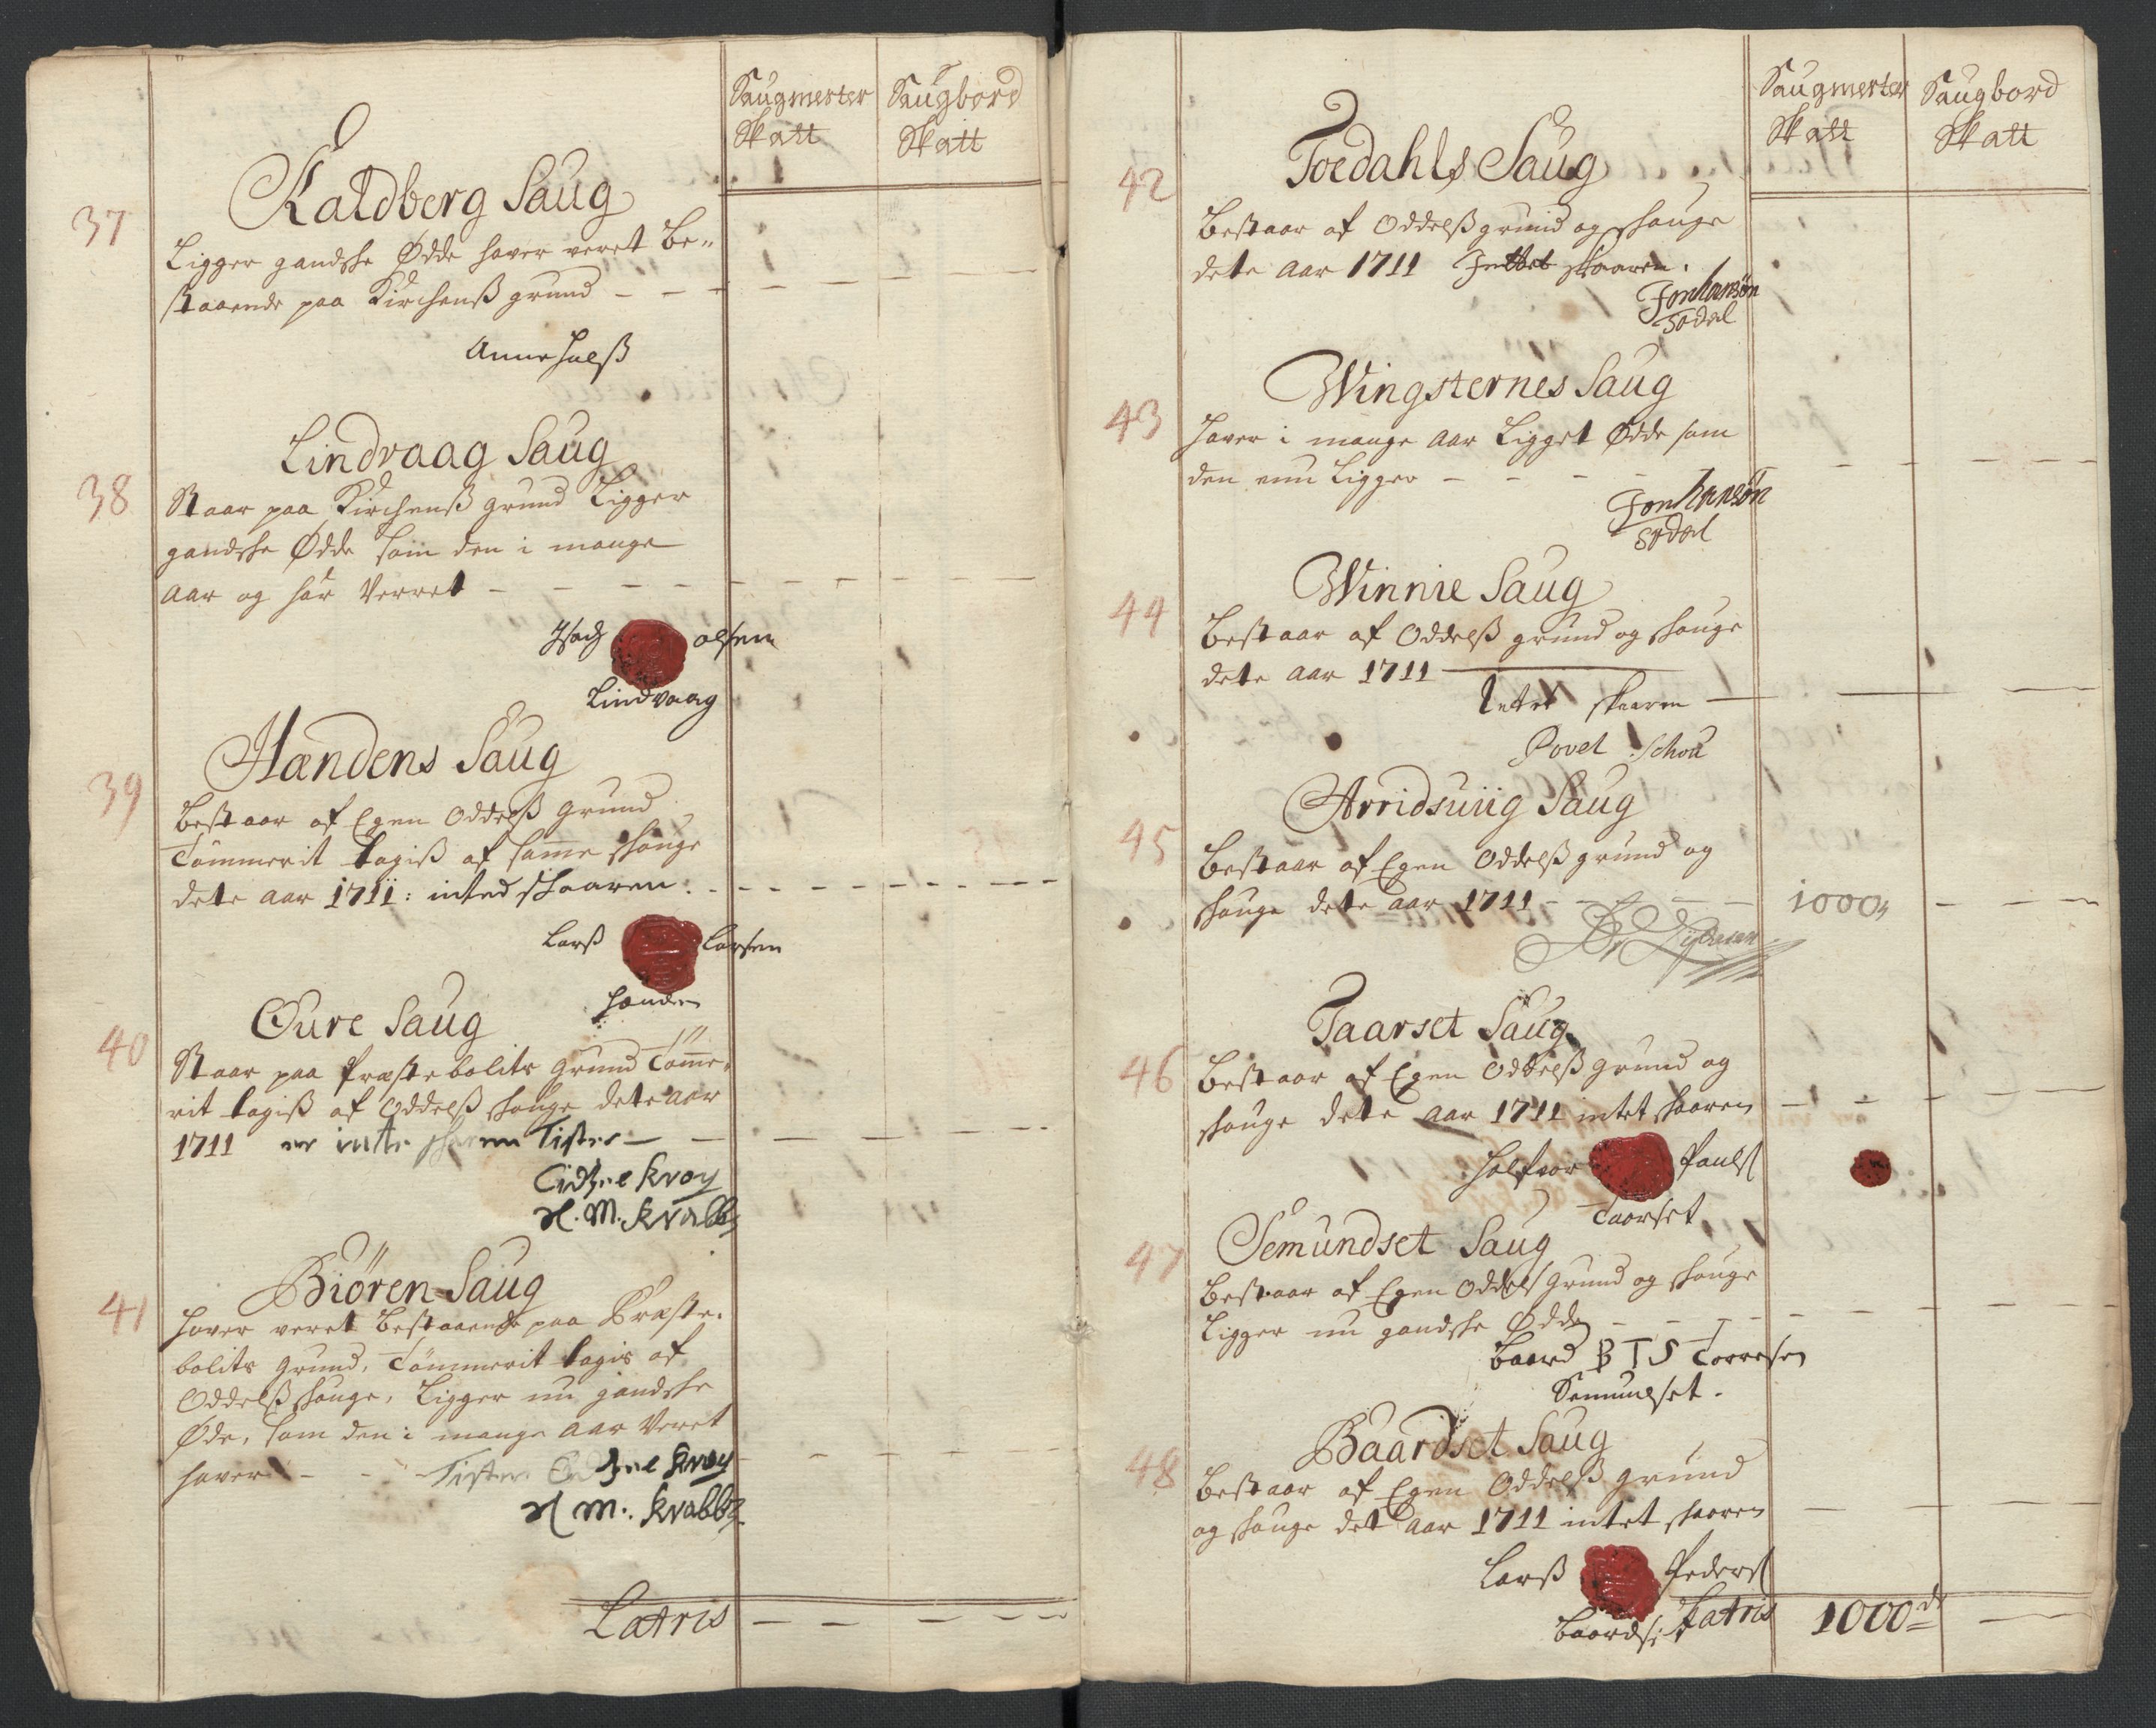 Saugmester Skatt
Saugbord Skatt
37
Kaldberg Saug
Ligger gandske Ødde haver veret be„
staaende paa Kirchenß grund - - - - -
Anne halß
38
Lindvaag Saug
Staar paa Kirchenß grund Ligger
gandske Ødde som den i mange
aar og har Verret - - - - - - - -
olsen
Lindvaag
39
Hændens Saug
bestaar af Egen Oddelß grund
Tömmerit tagiß af samme skouge
dete aar 1711: inted skaaren. - - - - - -
Larß Larsen
hænden
40
Øure Saug
Staar paa Præstebolits grund Tömme„
rit tagiß af Oddelß skouge dete aar
1711 er inte skaaren Tister - - - - -
Kroy
H. M. Krabb
41
Biören Saug
haver veret bestaaende paa Præste„
bolits grund, Tömmerit tagis af
Oddelß skouge, Ligger nu gandske
Øde, som den i mange aar Veret
haver - - Tister Kroy - - - -
H M. Krabb
Latris - - - - -
Saugmester Skatt
Saugbord Skatt
42
Toedahls Saug
bestaar af Oddelß grund og skouge
dete aar 1711 Inttet skaaren.
Jon hansøn
Todal
43
Wingsternes Saug
haver i mange aar Ligget Ødde som
den nu Ligger - - - - - - -
Jon hansøn
Todal
44
Winnie Saug
bestaar af Oddelß grund og skouge
dete aar 1711
Intet skaaren - - -
Povel Schou
45
Arridsuiig Saug
bestaar af Egen Oddelß grund og
skouge dete aar 1711 - - - - 1000 - - -
46
Taarset Saug
bestaar af Egen Oddelß grund og
skouge dete aar 1711 intet skaaren - - - - -
halfvor Paulß
Taarset
47
Semundset Saug
bestaar af Egen Oddelß grund og skouge
Ligger nu gandske Ødde - - - - - - -
baard B T S Torresen
Semundset.
48
Baardset Saug
bestaar af Egen Oddelß grund
og skouge det aar 1711 intet skaaren - - -
Larß Pederß
baards:
Latris 1000 -